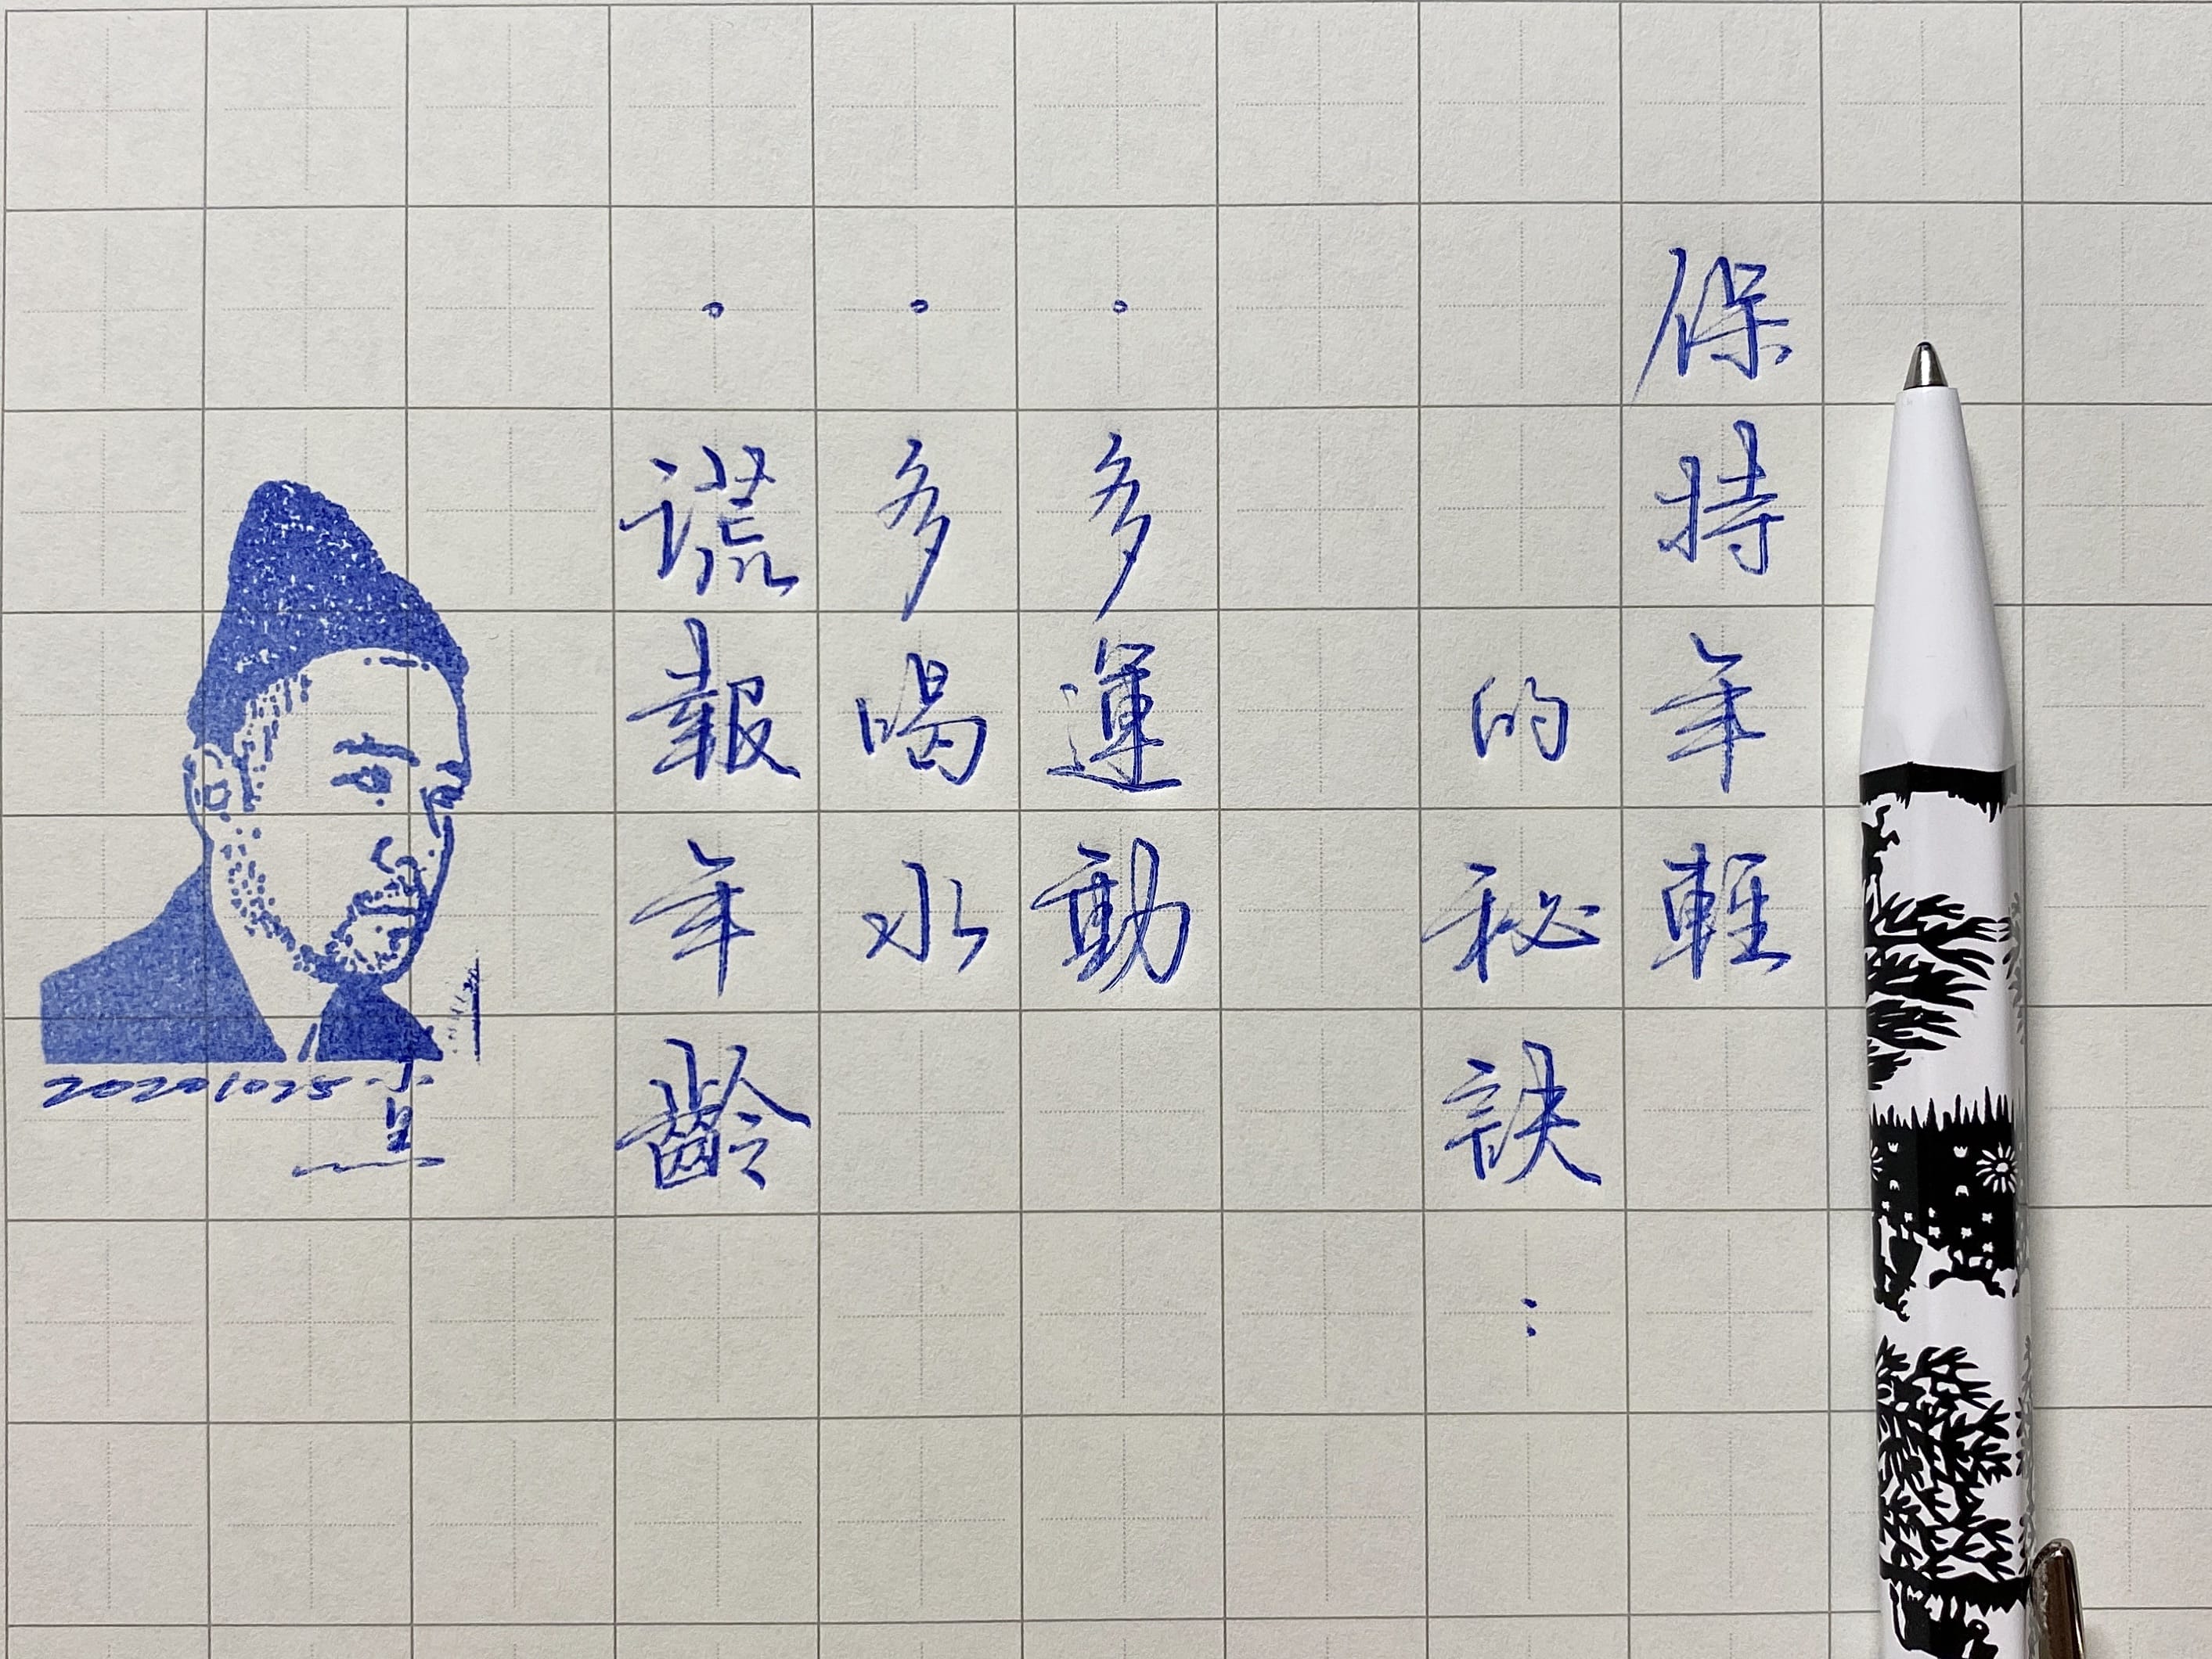 保持年輕
的秘訣：
·多運動
·多喝水
·謊報年齡
20201025